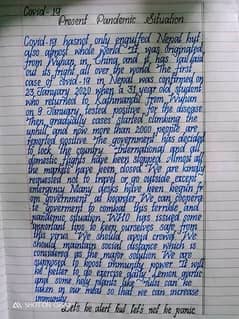 Covid-19
Present Pandemic Situation
Covid-19 hasnot only engulfed Nepal but
also almost whole World. It was originated
from Wuhan, in China, and it has laid
out its fright all over the world. The first
case of covid-19 in Nepal was confirmed on
23 January 2020 when a 31 year old student
who returned to Kathmandu from Wuhan
on 9 January, tested positive for the disease
Then gradually cases started climbing the
uphill and now more than 2000 people are
reported positive. The government has decided
to lock the country. International and
domestic flights have been stopped. Almost all
the markets have been closed. We are kindly
requested not to travel or go outside except
emergency. Many desks have been begin from
government at boarder. We can cooperate
government to combat this terrible and
pandemic situation. WHO has issued some
important tips to keep ourselves safe from
this virus. We should avoid crowd. We
should maintain social distance which is
considered as the major solution. We are
supposed to boost immunity power. It will
be better to do exercise daily. Lemon, garlic
and some help plants like can be
taken in our meal so that we can increase
immunity
Let's be alert but let's not be panic.
SHOT ON